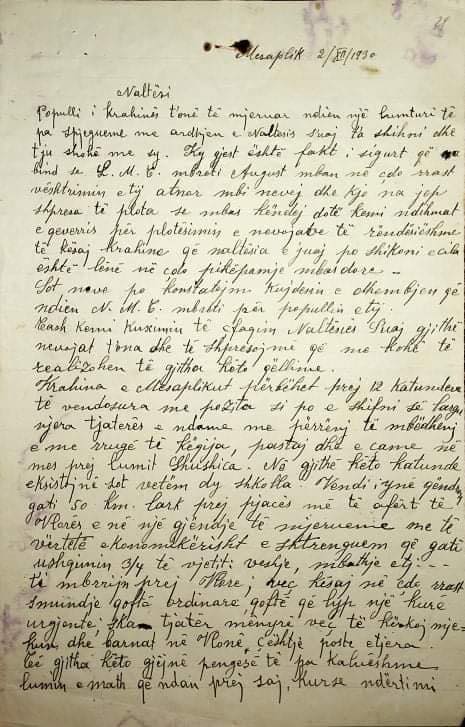 Mesaplik 2/XII/1930
Naltësi
Populli i krahinës t'onë të mjeruar ndien një lumturi të
pa spjegueme me ardhjen e Naltësis Suaj t'a shihni dhe
t'ju shohë me sy. Ky gjest është fakt i sigurt që
bind se L. M. T. mbreti August mban në çdo rrast
vështrimin e tij atnor mbi nevej dhe kjo na jep
shpresa të plota se mbas këndej dotë kemi ndihmat
e qeverris për plotësimin e nevojave të rëndësishme
të kësaj krahine që naltësia e juaj po shikoni e cila
është lënë në çdo pikëpamje mbasdore -
Sot neve po konstatojm kujdesin e dhembjen që
ndien N. M. T. mbreti për popullin e tij.
Cash kemi kuxumin të Naltësës Suaj gjithë
nevojat t'ona dhe të shpresojmë që me kohë të
realizohen të gjitha këto qëllime.
Krahina e Mesaplikut përbëhet prej 12 katundeve
të vendosura me pozita si po e shifni së largu,
njera tjatërës e ndame me përrënj të mbëdhenj
e me rrugë të këqija, pastaj dhe e came në
mes prej lumit Shushica. Në gjithë këto katunde
eksistojnë sot vetëm dy shkolla. Vendi i ynë qëndron
gati 50 km. lark prej pjacës më të afërt të
Vlorës e në një gjëndje të mjerueme me të
vërtetë ekonomikërisht e shtrenguem që gati
ushqimin 3/4 të vjetiti veshje, mbathje etj. - -
ti mbrrijn prej Vlore; veç kësaj në çdo rrast
smundje qoftë ordinare, qoftë që lyp një kurë
urgjente, ska tjatër mënyrë veç të kërkoj mje-
kun dhe barnat në Vlonë, çështje poste etjera.
Të gjitha këto gjëjnë pengesë të pa kalueshme
lumin e math që ndan prej saj, kurse ndërtimi